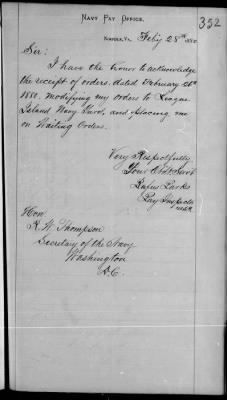 NAVY PAY OFFICE,
352
NORFOLK, VA. Feb'y 28th 1880
Sir:
I have the honor to acknowledge
the receipt of orders, dated February 26th
1880, modifying my orders to League
Island Navy Yard, and placing me
on Waiting Orders.
Very Respectfully
Your Obdt Servt
Rufus Parks
Pay Inspector
U.S.N.
Hon
R. W. Thompson
Secretary of the Navy
Washington
D.C.